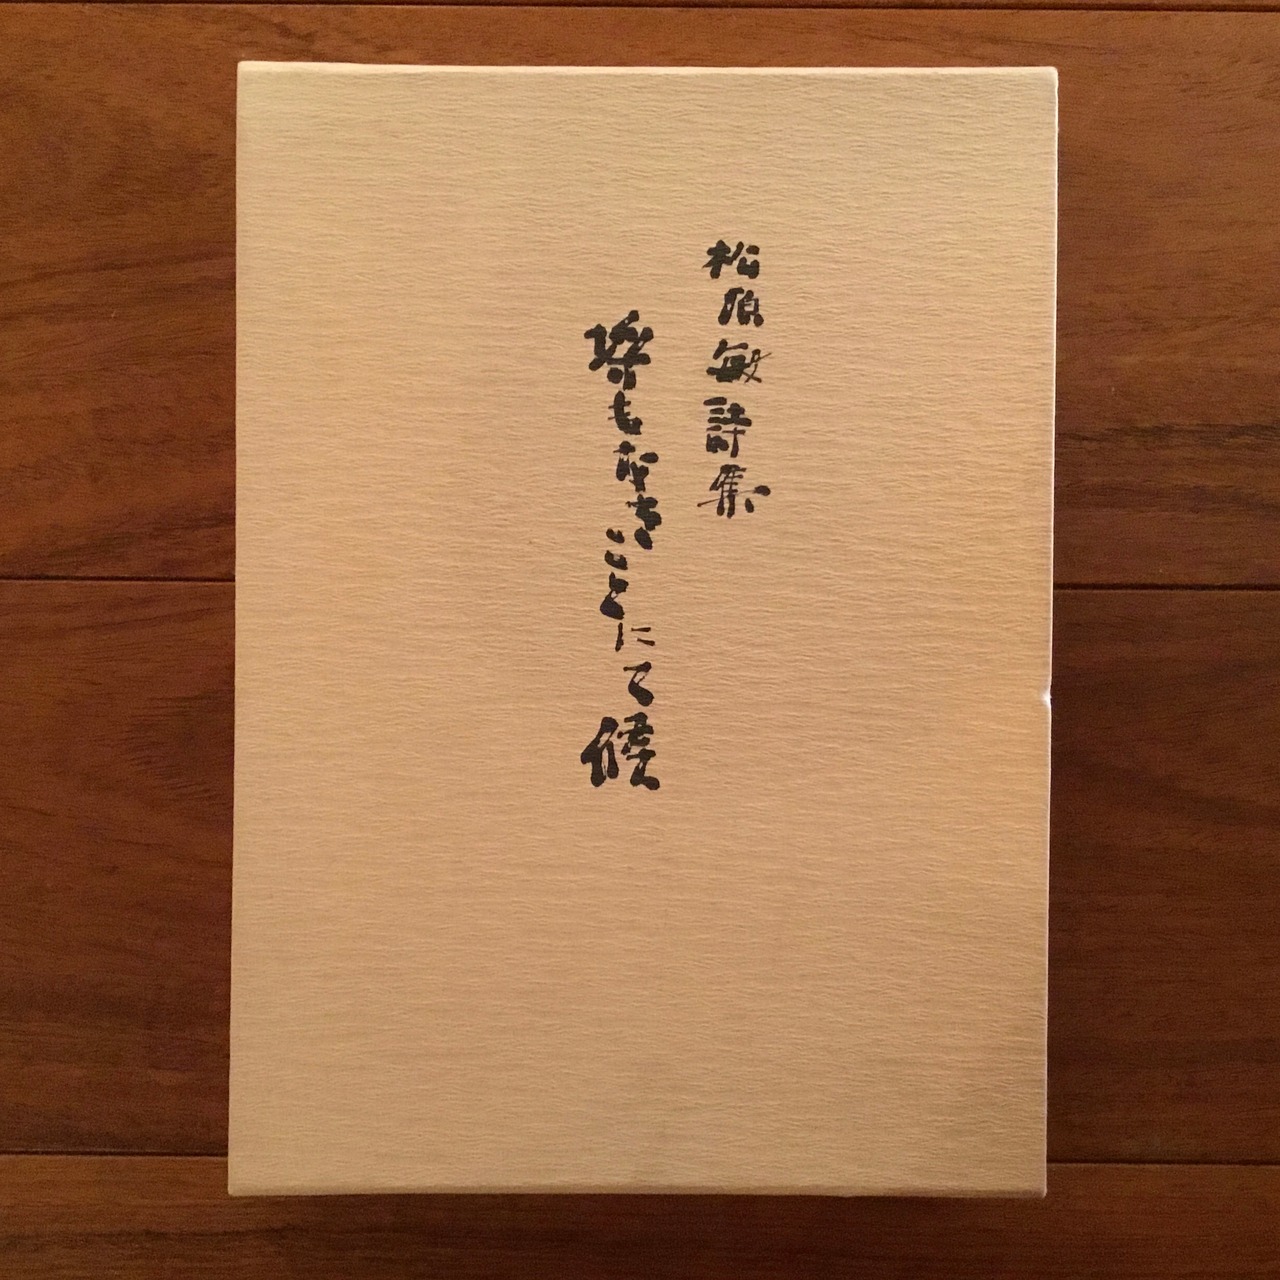 松原敏詩集
埒もなきことにて候